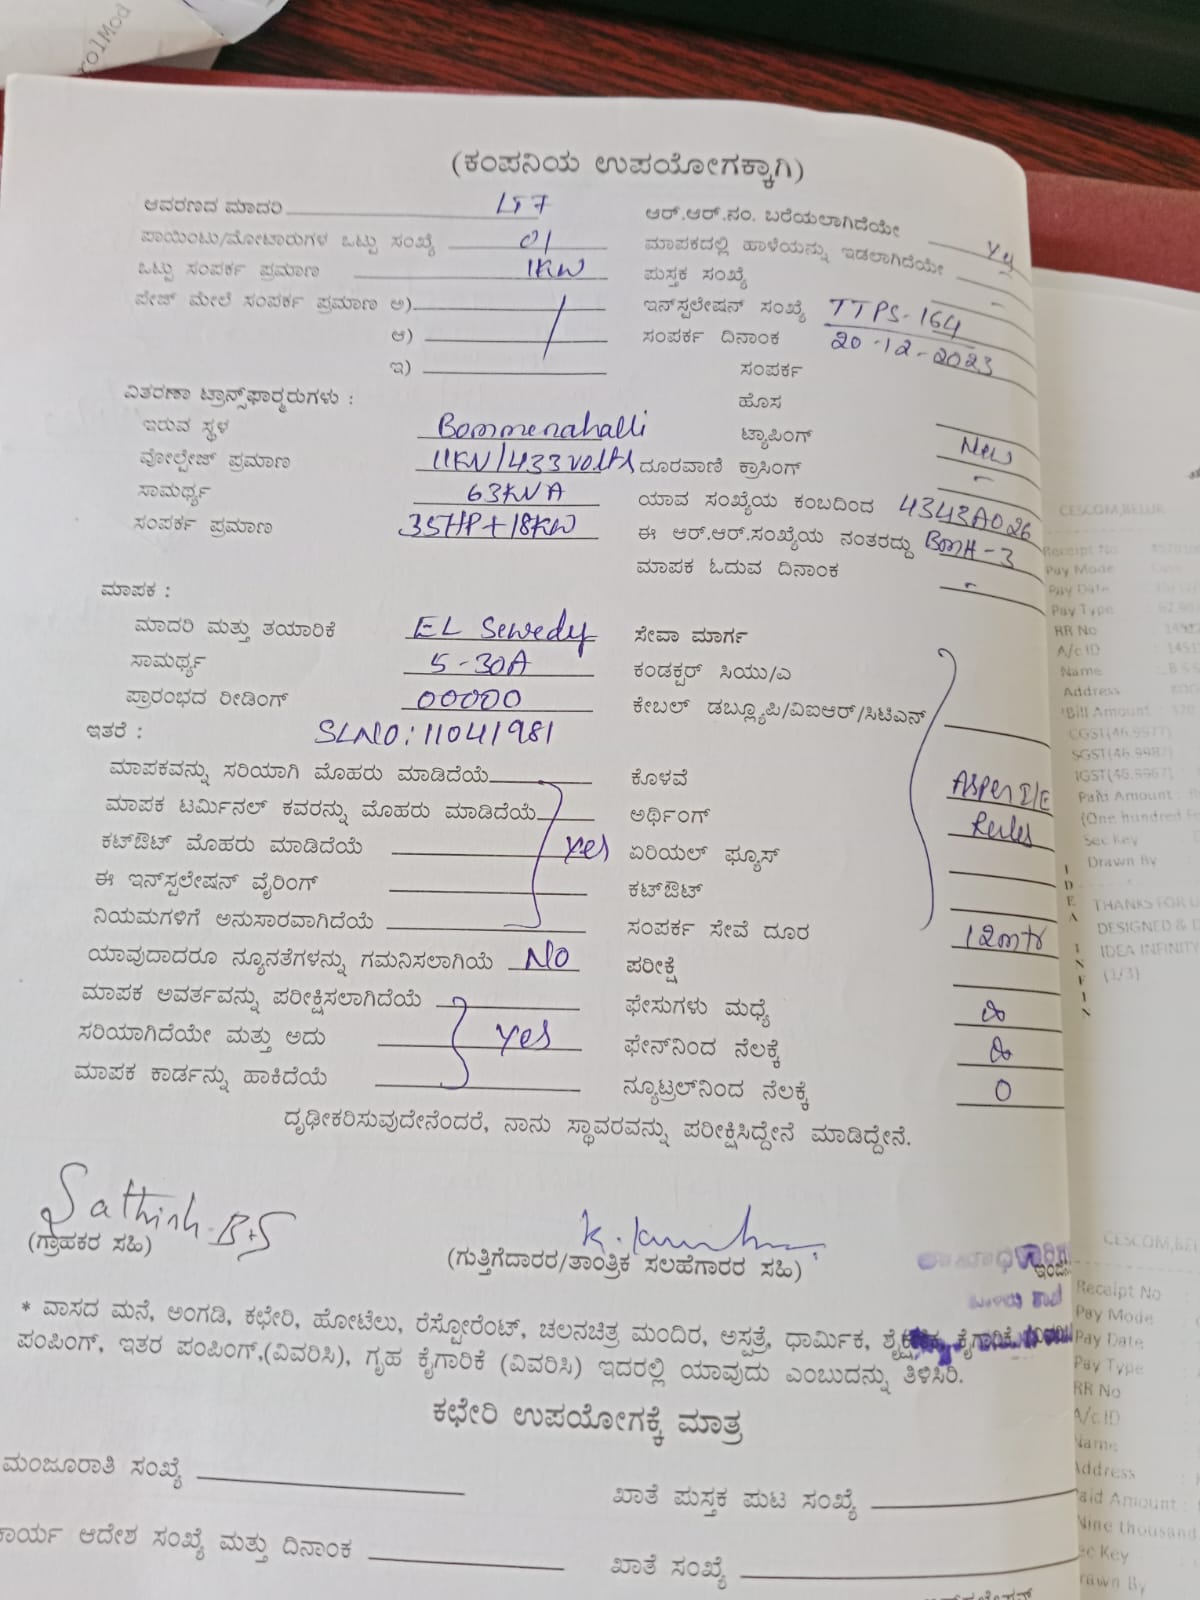 rolMod
(ಕಂಪನಿಯ ಉಪಯೋಗಕ್ಕಾಗಿ)
ಆವರಣದ ಮಾದರಿ LT7
ಪಾಯಿಂಟು/ಮೋಟಾರುಗಳ ಒಟ್ಟು ಸಂಖ್ಯೆ 01
ಒಟ್ಟು ಸಂಪರ್ಕ ಪ್ರಮಾಣ 1KW
ಪೇಜ್ ಮೇಲೆ ಸಂಪರ್ಕ ಪ್ರಮಾಣ ಅ)
ಆ)
ಇ)
ವಿತರಣಾ ಟ್ರಾನ್ಸ್‌ಫಾರ್ಮರುಗಳು :
ಇರುವ ಸ್ಥಳ Bommenahalli
ವೋಲ್ಟೇಜ್ ಪ್ರಮಾಣ 11KV/433volts
ಸಾಮರ್ಥ್ಯ 63KVA
ಸಂಪರ್ಕ ಪ್ರಮಾಣ 35HP+18KW
ಆರ್.ಆರ್.ನಂ. ಬರೆಯಲಾಗಿದೆಯೇ
ಮಾಪಕದಲ್ಲಿ ಹಾಳೆಯನ್ನು ಇಡಲಾಗಿದೆಯೇ
ಪುಸ್ತಕ ಸಂಖ್ಯೆ -
ಇನ್‌ಸ್ಟಲೇಷನ್ ಸಂಖ್ಯೆ TTPS-164
ಸಂಪರ್ಕ ದಿನಾಂಕ 20-12-2023
ಸಂಪರ್ಕ
ಹೊಸ New
ಟ್ಯಾಪಿಂಗ್ -
ದೂರವಾಣಿ ಕ್ರಾಸಿಂಗ್
ಯಾವ ಸಂಖ್ಯೆಯ ಕಂಬದಿಂದ 4343A026
ಈ ಆರ್.ಆರ್.ಸಂಖ್ಯೆಯ ನಂತರದ್ದು BMH-3
ಮಾಪಕ ಓದುವ ದಿನಾಂಕ -
ಮಾಪಕ :
ಮಾದರಿ ಮತ್ತು ತಯಾರಿಕೆ EL Sewedy
ಸಾಮರ್ಥ್ಯ 5-30A
ಪ್ರಾರಂಭದ ರೀಡಿಂಗ್ 00000
ಇತರೆ : SLNO:11041981
ಮಾಪಕವನ್ನು ಸರಿಯಾಗಿ ಮೊಹರು ಮಾಡಿದೆಯೆ
ಮಾಪಕ ಟರ್ಮಿನಲ್ ಕವರನ್ನು ಮೊಹರು ಮಾಡಿದೆಯೆ
ಕಟ್‌ಔಟ್ ಮೊಹರು ಮಾಡಿದೆಯೆ yes
ಈ ಇನ್‌ಸ್ಟಲೇಷನ್ ವೈರಿಂಗ್
ನಿಯಮಗಳಿಗೆ ಅನುಸಾರವಾಗಿದೆಯೆ
ಯಾವುದಾದರೂ ನ್ಯೂನತೆಗಳನ್ನು ಗಮನಿಸಲಾಗಿಯೆ NO
ಮಾಪಕ ಅವರ್ತವನ್ನು ಪರೀಕ್ಷಿಸಲಾಗಿದೆಯೆ
ಸರಿಯಾಗಿದೆಯೇ ಮತ್ತು ಅದು yes
ಮಾಪಕ ಕಾರ್ಡನ್ನು ಹಾಕಿದೆಯೆ
ಸೇವಾ ಮಾರ್ಗ
ಕಂಡಕ್ಟರ್ ಸಿಯು/ಎ
ಕೇಬಲ್ ಡಬ್ಲ್ಯೂಪಿ/ವಿಐಆರ್/ಸಿಟಿಎಸ್
ಕೊಳವೆ Asper I/E
ಅರ್ಥಿಂಗ್ Rules
ಏರಿಯಲ್ ಫ್ಯೂಸ್
ಕಟ್‌ಔಟ್
ಸಂಪರ್ಕ ಸೇವೆ ದೂರ 12mtr
ಪರೀಕ್ಷೆ
ಫೇಸುಗಳು ಮಧ್ಯೆ
ಫೇಸ್‌ನಿಂದ ನೆಲಕ್ಕೆ
ನ್ಯೂಟ್ರಲ್‌ನಿಂದ ನೆಲಕ್ಕೆ 0
ದೃಢೀಕರಿಸುವುದೇನೆಂದರೆ, ನಾನು ಸ್ಥಾವರವನ್ನು ಪರೀಕ್ಷಿಸಿದ್ದೇನೆ ಮಾಡಿದ್ದೇನೆ.
(ಗ್ರಾಹಕರ ಸಹಿ)
(ಗುತ್ತಿಗೆದಾರರ/ತಾಂತ್ರಿಕ ಸಲಹೆಗಾರರ ಸಹಿ)
* ವಾಸದ ಮನೆ, ಅಂಗಡಿ, ಕಛೇರಿ, ಹೋಟೆಲು, ರೆಸ್ಟೋರೆಂಟ್, ಚಲನಚಿತ್ರ ಮಂದಿರ, ಅಸ್ಪತ್ರೆ, ಧಾರ್ಮಿಕ, ಕೈಗಾರಿಕೆ,
ಪಂಪಿಂಗ್, ಇತರ ಪಂಪಿಂಗ್,(ವಿವರಿಸಿ), ಗೃಹ ಕೈಗಾರಿಕೆ (ವಿವರಿಸಿ) ಇದರಲ್ಲಿ ಯಾವುದು ಎಂಬುದನ್ನು ತಿಳಿಸಿರಿ.
ಕಛೇರಿ ಉಪಯೋಗಕ್ಕೆ ಮಾತ್ರ
ಮಂಜೂರಾತಿ ಸಂಖ್ಯೆ
ಖಾತೆ ಪುಸ್ತಕ ಪುಟ ಸಂಖ್ಯೆ
ಕಾರ್ಯ ಆದೇಶ ಸಂಖ್ಯೆ ಮತ್ತು ದಿನಾಂಕ
ಖಾತೆ ಸಂಖ್ಯೆ
CESCOM,BELUR
Receipt No
Pay Mode
Pay Date
Pay Type
RR No
A/c ID
Name
Address
Bill Amount
Paid Amount
(One hundred
Sec Key
Drawn By
THANKS FOR
DESIGNED &
IDEA INFINITY
(1/3)
IDEA INFIN
CESCOM,BEL
Receipt No
Pay Mode
Pay Date
Pay Type
RR No
A/c ID
Name
Address
Paid Amount :
Nine thousand
Sec Key
Drawn By